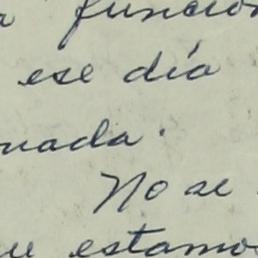 a función
ese día
nuada.
No se
estamos